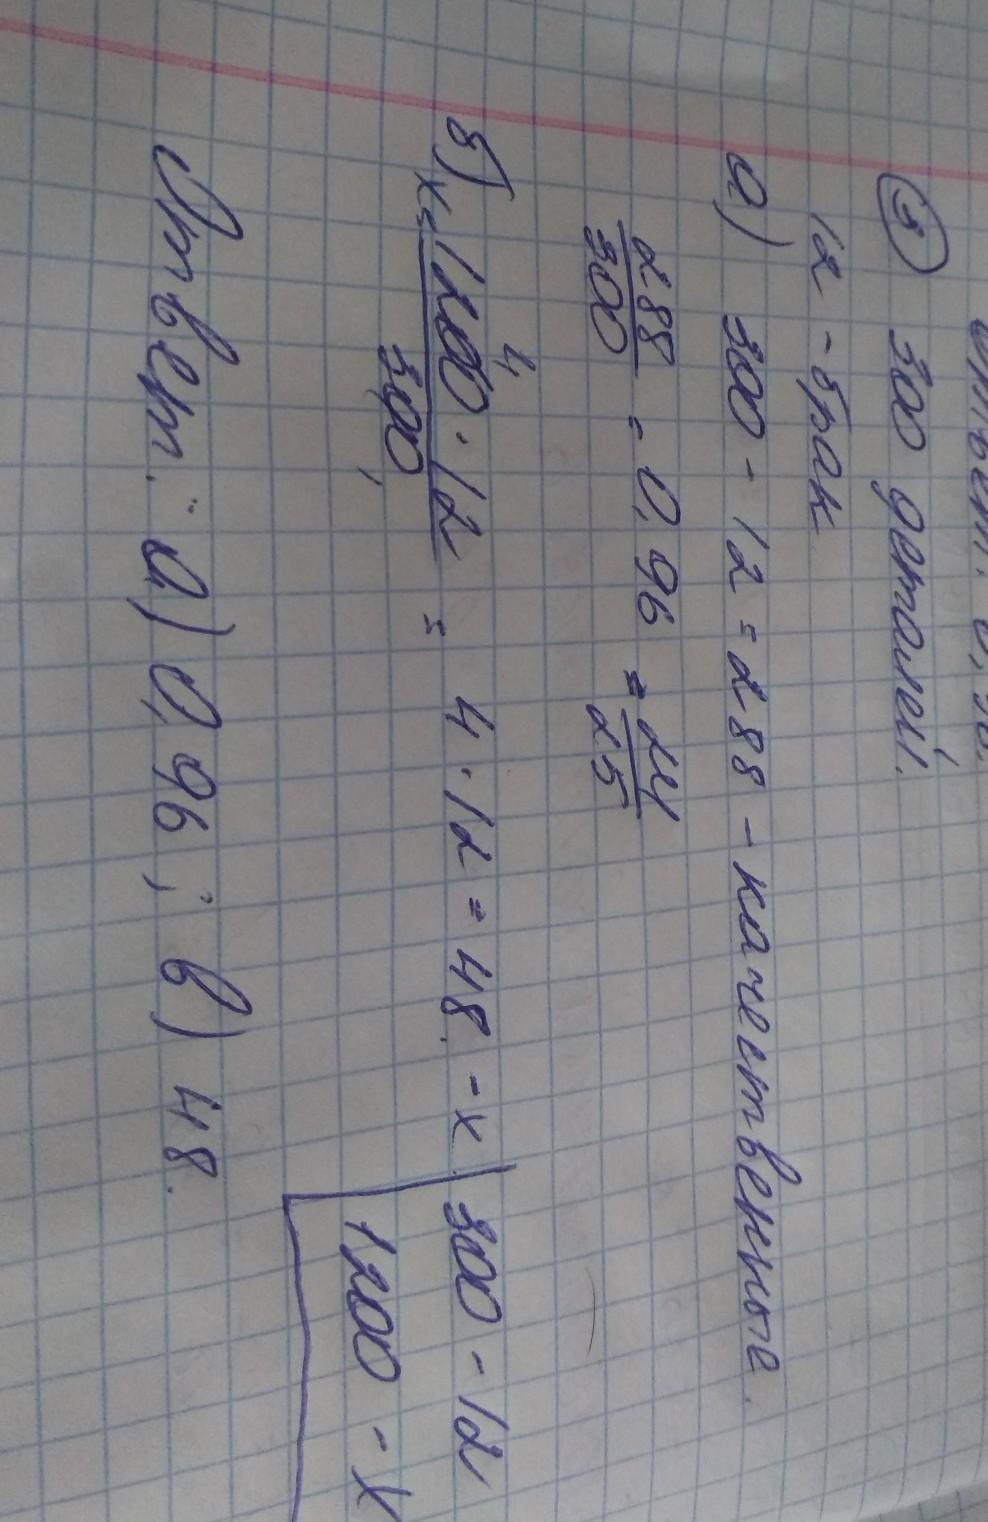 Ответ: 0,96.
③ 300 деталей.
12 - брак
а) 300 - 12 = 288 - качественные.
288/300 = 0,96 = 24/25
б) x = 1200 · 12 / 300 = 4 · 12 = 48 - x
4
1
300 - 12
1200 - x
Ответ: а) 0,96; в) 48.